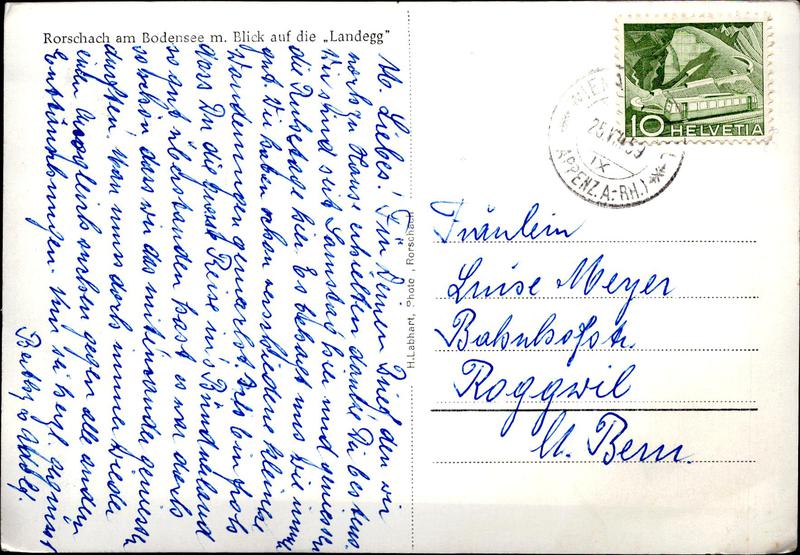 Rorschach am Bodensee m. Blick auf die „Landegg"
M. Liebes! Für Deinen Brief den wir
noch zu Hause erhielten danke Dir bestens.
Wir sind seit Samstag hier und geniessen
die Ruhetage hier. Es behagt uns wie immer
gut. Wir haben schon verschiedene kleinere
Wanderungen gemacht. Ich bin froh
dass Du die Reise ins Bündnerland
so gut überstanden hast es war doch
so schön dass wir das miteinander geniessen
durften. Man muss doch immer wieder
einen Ausgleich suchen gegen alle andern
Enttäuschungen. Nun sei herzl. gegrüsst
Berthy u.
H. Labhart, Photo, Rorschach
10 HELVETIA
59
IX
(APPENZ.A.-RH.)
Fräulein
Luise Meyer
Bahnhofstr.
Roggwil
Kt. Bern.